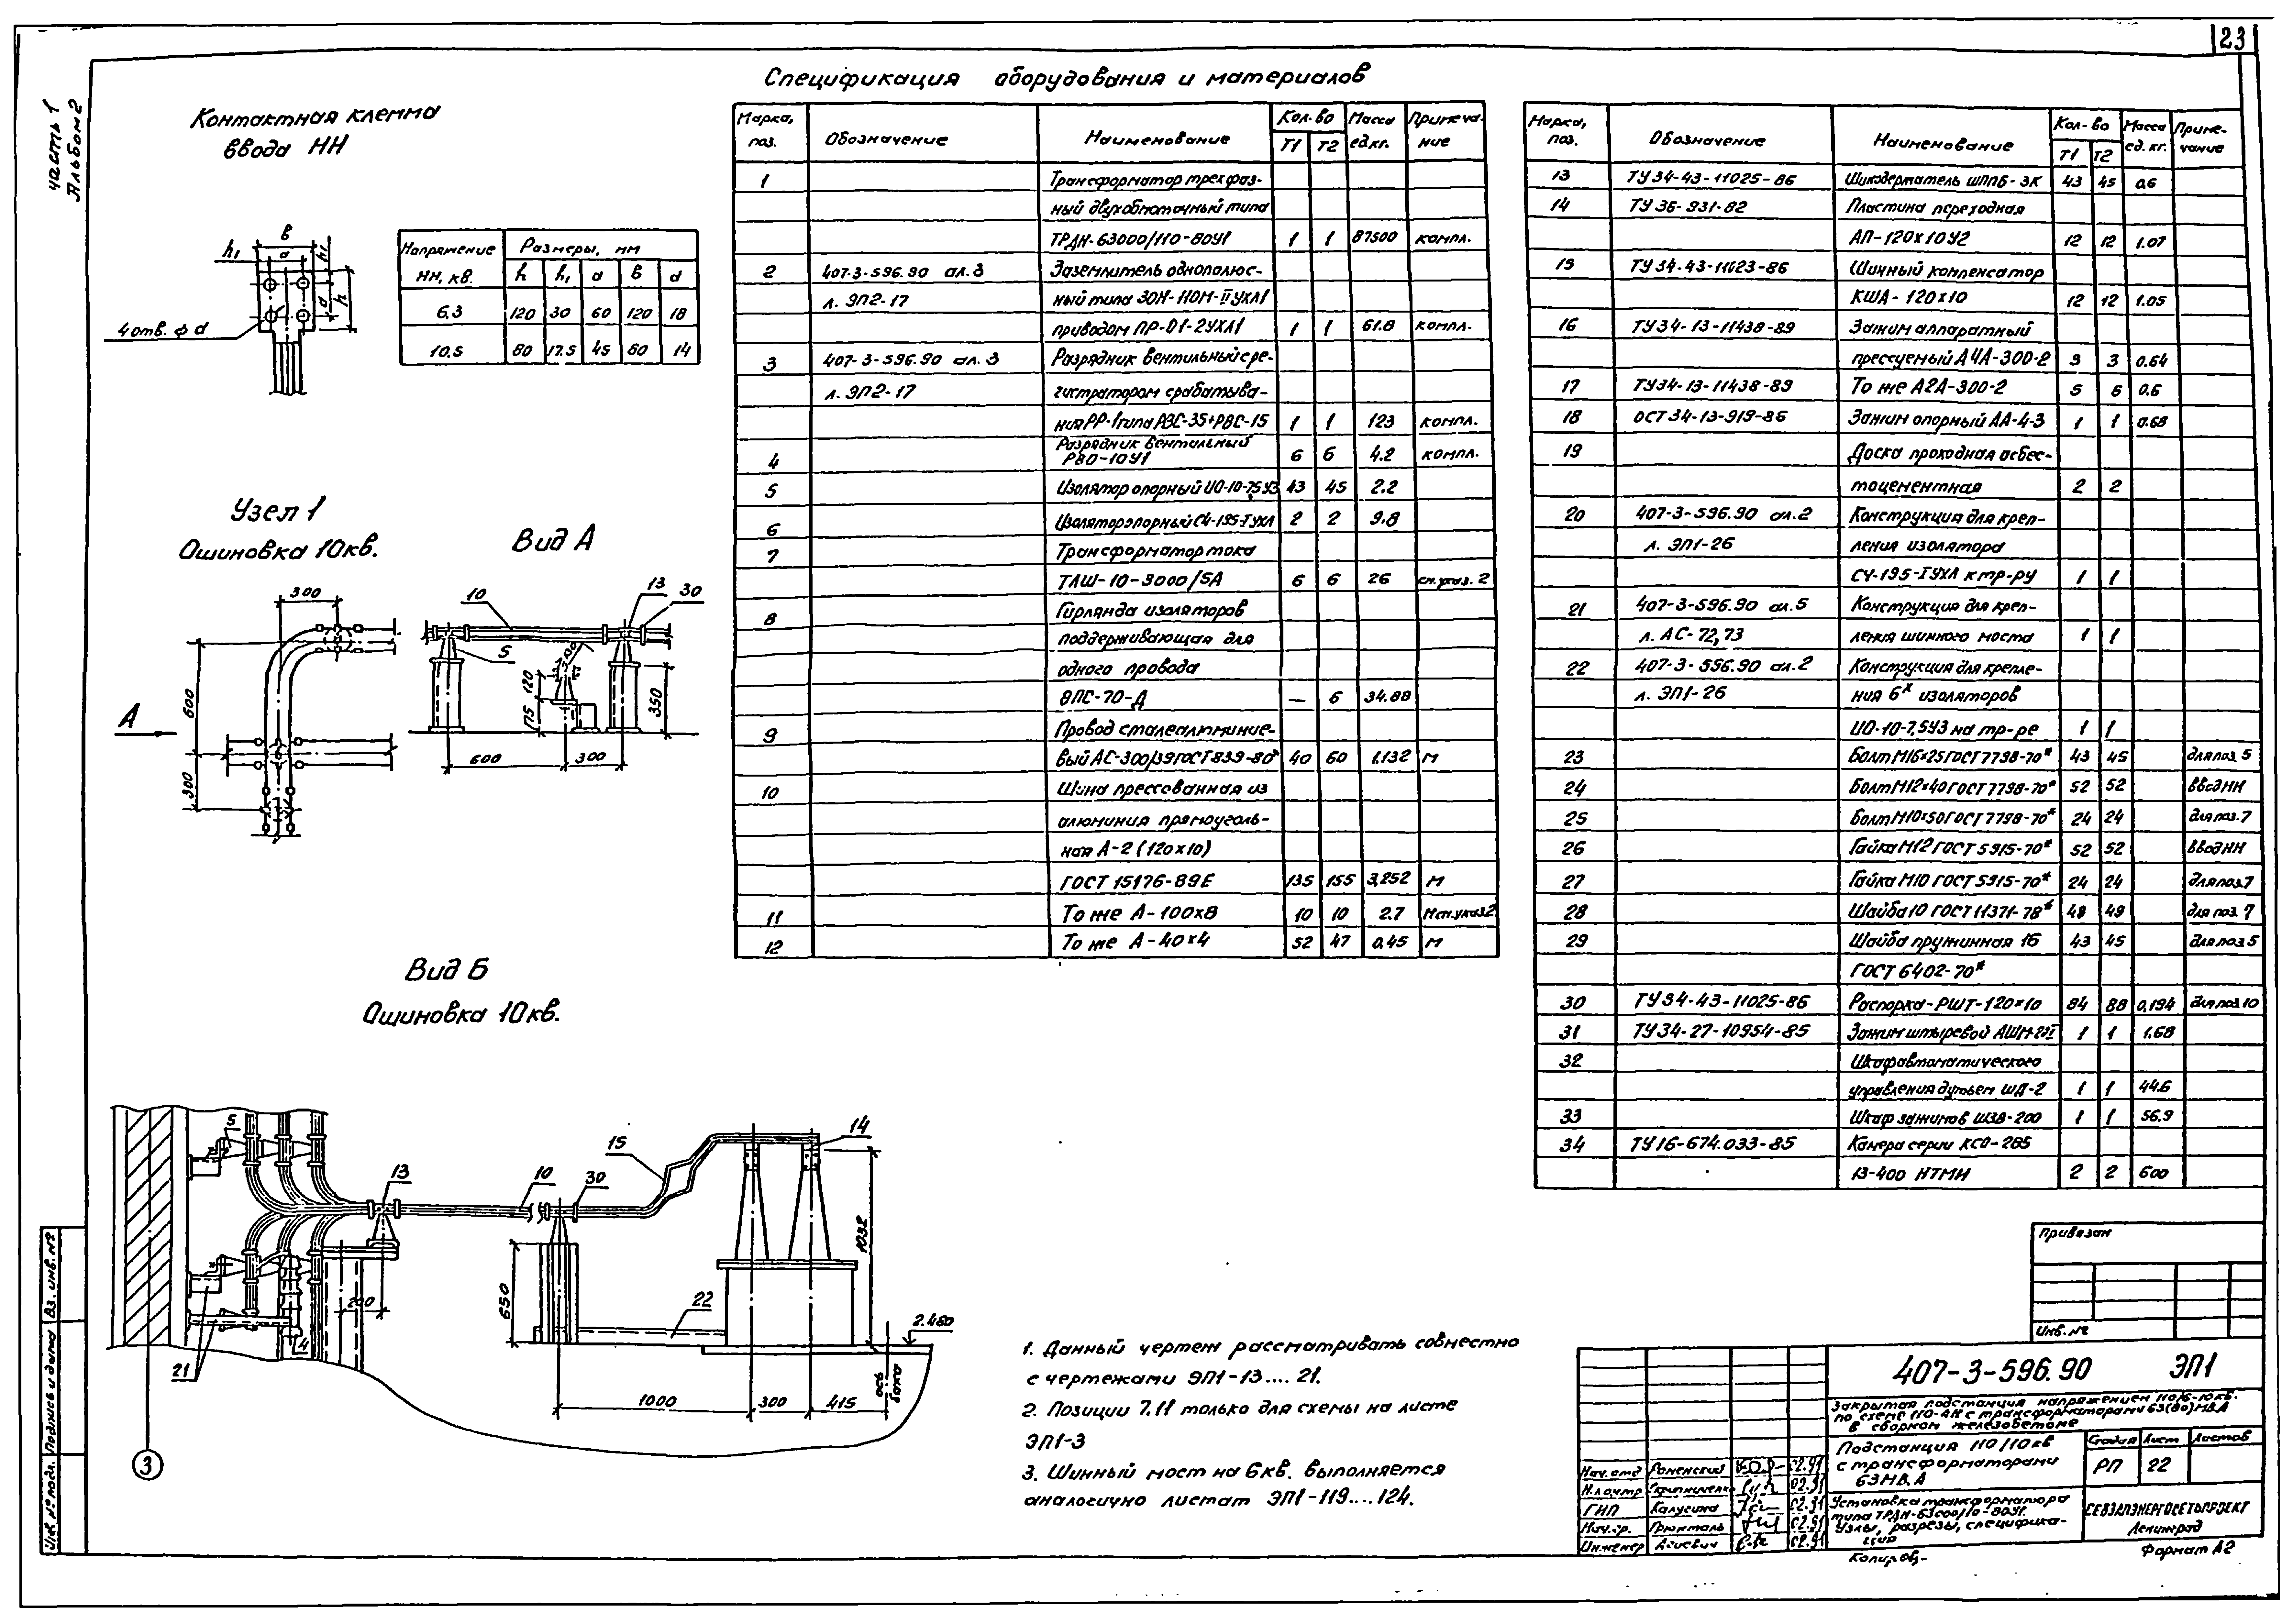 23
часть 1
Альбом 2
Контактная клемма
ввода НН
в
h₁
а
h₁
а
h
4 отв. ф d
Напряжение НН, кв. | Размеры, мм
h | h₁ | а | в | d
6,3 | 120 | 30 | 60 | 120 | 18
10,5 | 80 | 17.5 | 45 | 80 | 14
Узел 1
Ошиновка 10кв.
300
600
300
А
Вид А
10
13
30
5
120
175
350
600
300
Вид Б
Ошиновка 10кв.
5
13
10
30
15
14
200
650
22
1032
2.480
4
21
1000
300
415
ось
бака
3
Спецификация оборудования и материалов
Марка, поз. | Обозначение | Наименование | Кол-во Т1 Т2 | Масса ед.кг. | Примечание
1 | Трансформатор трехфаз-
ный двухобмоточный типа
ТРДН-63000/110-80У1 | 1 | 1 | 87500 | компл.
2 | 407-3-596.90 ал.3 | Заземлитель однополюс-
л. ЭП2-17 | ный типа ЗОН-110М-II УХЛ1
приводом ПР-01-2УХЛ1 | 1 | 1 | 61.8 | компл.
3 | 407-3-596.90 ал. 3 | Разрядник вентильный с ре-
л. ЭП2-17 | гистратором срабатыва-
ния РР-1 типа РВС-35+РВС-15 | 1 | 1 | 123 | компл.
4 | Разрядник вентильный
РВО-10У1 | 6 | 6 | 4.2 | компл.
5 | Изолятор опорный ИО-10-7,5У3 | 43 | 45 | 2.2
6 | Изолятор опорный С4-195-I УХЛ | 2 | 2 | 9.8
7 | Трансформатор тока
ТЛШ-10-3000/5А | 6 | 6 | 26 | см.указ. 2
8 | Гирлянда изоляторов
поддерживающая для
одного провода
8ПС-70-Д | — | 6 | 34.88
9 | Провод сталеалюминие-
вый АС-300/39 ГОСТ 839-80* | 40 | 60 | 1.132 | м
10 | Шина прессованная из
алюминия прямоуголь-
ная А-2 (120х10)
ГОСТ 15176-89Е | 135 | 155 | 3,252 | м
11 | То же А-100х8 | 10 | 10 | 2.7 | м см.указ 2
12 | То же А-40х4 | 52 | 47 | 0,45 | м
Марка, поз. | Обозначение | Наименование | Кол-во Т1 Т2 | Масса ед. кг. | Примечание
13 | ТУ 34-43-11025-86 | Шинодержатель ШППБ-3К | 43 | 45 | 0.6
14 | ТУ 36-931-82 | Пластина переходная
АП-120х10У2 | 12 | 12 | 1.07
15 | ТУ 34-43-11023-86 | Шинный компенсатор
КША-120х10 | 12 | 12 | 1.05
16 | ТУ34-13-11438-89 | Зажим аппаратный
прессуемый А4А-300-2 | 3 | 3 | 0.64
17 | ТУ34-13-11438-89 | То же А2А-300-2 | 5 | 6 | 0.6
18 | ОСТ 34-13-919-86 | Зажим опорный АА-4-3 | 1 | 1 | 0.68
19 | Доска проходная асбес-
тоцементная | 2 | 2
20 | 407-3-596.90 ал.2 | Конструкция для креп-
л. ЭП1-26 | ления изолятора
СЧ-195-I УХЛ к тр-ру | 1 | 1
21 | 407-3-596.90 ал.5 | Конструкция для креп-
л. АС-72,73 | ления шинного моста | 1 | 1
22 | 407-3-596.90 ал.2 | Конструкция для крепле-
л. ЭП1-26 | ния 6х изоляторов
ИО-10-7,5У3 на тр-ре | 1 | 1
23 | Болт М16х25 ГОСТ 7798-70* | 43 | 45 | для поз 5
24 | Болт М12х40 ГОСТ 7798-70* | 52 | 52 | ввод НН
25 | Болт М10х50 ГОСТ 7798-70* | 24 | 24 | для поз.7
26 | Гайка М12 ГОСТ 5915-70* | 52 | 52 | ввод НН
27 | Гайка М10 ГОСТ 5915-70* | 24 | 24 | для поз7
28 | Шайба 10 ГОСТ 11371-78* | 49 | 49 | для поз. 7
29 | Шайба пружинная 16 | 43 | 45 | для поз 5
ГОСТ 6402-70*
30 | ТУ 34-43-11025-86 | Распорка-РШТ-120х10 | 84 | 88 | 0,194 | для поз 10
31 | ТУ34-27-10954-85 | Зажим штыревой | 1 | 1 | 1.68
32 | Шкаф автоматического
управления дутьем ШД-2 | 1 | 1 | 44.6
33 | Шкаф зажимов ШЗВ-200 | 1 | 1 | 56.9
34 | ТУ16-674.033-85 | Камера серии КСО-285
13-400 НТМИ | 2 | 2 | 600
1. Данный чертеж рассматривать совместно
с чертежами ЭП1-13....21.
2. Позиции 7.11 только для схемы на листе
ЭП1-3
3. Шинный мост на 6кв. выполняется
аналогично листам ЭП1-119....124.
Привязан
Инв. №
407-3-596.90 ЭП1
Закрытая подстанция напряжением 110/6-10кв.
по схеме 110-4Н с трансформаторами 63(80)МВА
в сборном железобетоне
Подстанция 110/10кв
с трансформаторами
63МВ.А
Стадия | Лист | Листов
РП | 22
Установка трансформатора
типа ТРДН-63000/110-80У1.
Узлы, разрезы, специфика-
ция
СЕВЗАПЭНЕРГОСЕТЬПРОЕКТ
Ленинград
Нач. отд | Роменский | 02.91
Н.контр | 02.91
ГИП | Калугина | 02.91
Нач.гр. | 02.91
Инженер | 02.91
Копиров.-
Формат А2
Инв. № подл.
Подпись и дата
Вз. инв. №